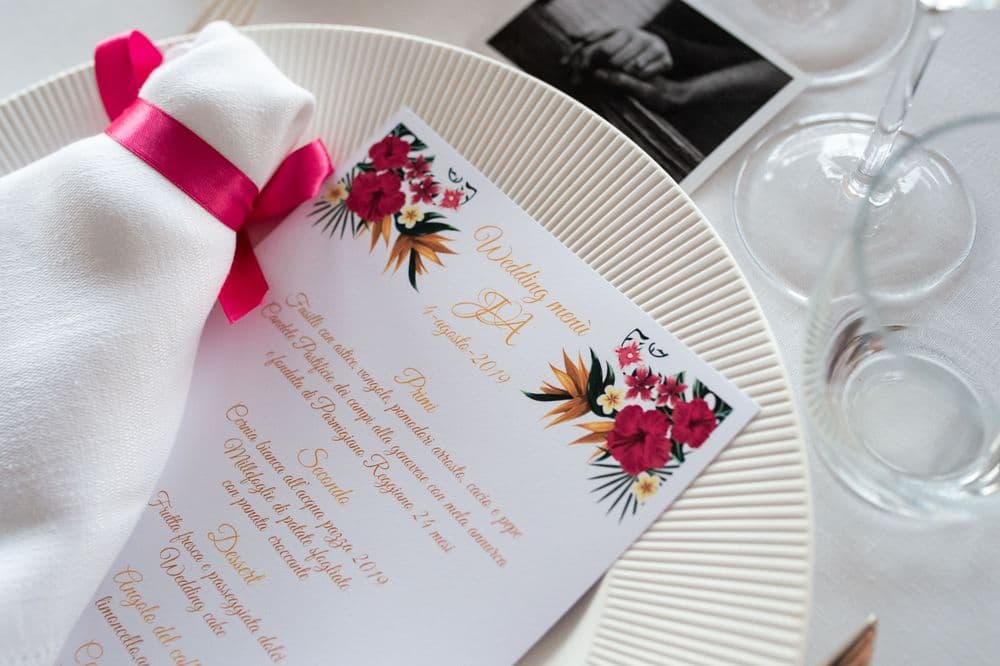 Wedding menù
J&A
4-agosto-2019
Primi
Fusilli con astice, vongole, pomodori arrosto, cacio e pepe
Candele Pastificio dei campi alla genovese con mela annurca
e fonduta di Parmigiano Reggiano 24 mesi
Secondo
Cernia bianca all'acqua pazza 2019
Millefoglie di patate sfogliate
con panata croccante
Dessert
Frutta fresca e passeggiata dolci
Wedding cake
Angolo del
limoncello,